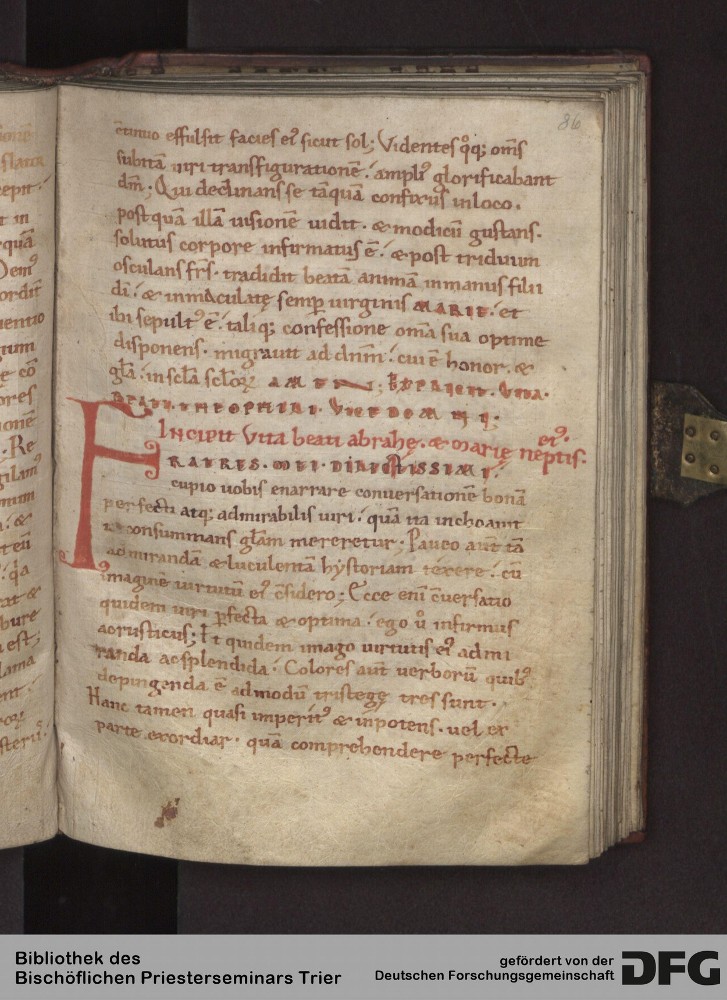 86
c̄tinuo effulsit facies ei᷒ sicut sol; Videntes q̊q; om̄s
subitā uiri transfigurationē. ampli᷒ glorificabant
dm̄; Qui declinans se tāquā confixus in loco.
postquā illā uisionē uidit. & modicū gustans.
solutus corpore infirmatus ē. & post triduum
osculans frs̄. tradidit beatā animā in manus filii
di. & inmaculatę semꝑ uirginis MARIE. et
ibi sepult᷒ ē. taliq; confessione om̄a sua optime
disponens. migrauit ad dn̄m. cui ē honor. &
gl̄a. in scl̄a scl̄oꝝ AMEN; EXPLICIT. VITA.
BEATI. THEOPHILI. VICEDOMINI.
INCIPIT Vita beati abrahę. & marię neptis. ei᷒.
FRATRES. MEI. DILECTISSIMI.
cupio uobis enarrare conuersationē bonā
perfecti atq; admirabilis uiri. quā ita inchoauit
ut consummans gl̄am mereretur; Paueo aut̄ tā
admirandā & luculentā hystoriam texere. cū
imaginē uirtutū ei᷒ c̄sidero; Ecce eni c̄uersatio
quidem uiri ꝑfecta & optima. ego ů infirmus
ac rusticus; Et quidem imago uirtutis ei᷒ admi
randa ac splendida. Colores aut̄ uerborū quib᷒
depingenda ē admodū tristegę tres sunt.
Hanc tamen quasi imperit᷒ & inpotens. uel ex
parte exordiar. quā comprehendere perfecte
Bibliothek des
Bischöflichen Priesterseminars Trier
gefördert von der
Deutschen Forschungsgemeinschaft
DFG